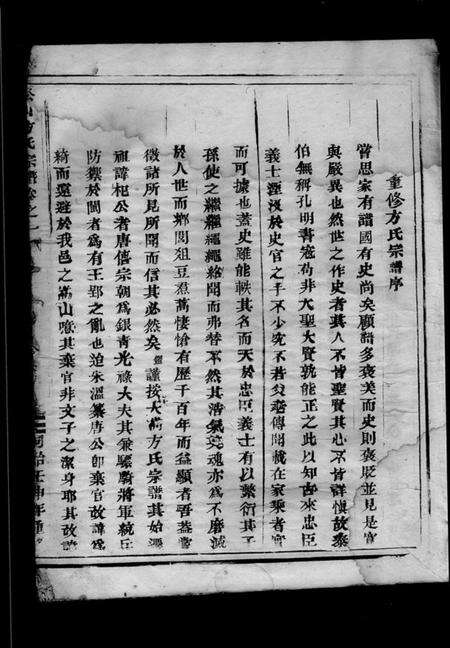 重修方氏宗譜序
嘗思家有譜國有史尚矣顧譜多褒美而史則褒貶並見是宜
與嚴異也然世之作史者其人不皆聖賢其心不皆詳慎故桼
伯無稱孔明書寇苟非大聖大賢孰能正之此以知古來忠臣
義士湮沒於史官之手不少究不若父老傳聞載在家乘者實
而可據也蓋史雖能軼其名而天於忠臣義士有以繁衍其子
孫使之繼繼繩繩紛聞而弗替不然其浩氣英魂亦為不磨滅
於人世而鄉閭俎豆焄蒿悽愴有歷千百年而益顯者吾蓋嘗
徵諸所見所聞而信其必然矣謹按大嵩方氏宗譜其始遷
祖諱杞公者唐僖宗朝為銀青光祿大夫其兼驃騎將軍統兵
防禦於閩者為有王郢之亂也迨朱溫纂唐公即棄官改諱為
綺而遠遊於我邑之嵩山噫其棄官非文子之潔身耶其改諱
方氏宗譜卷之一
同治壬申年重